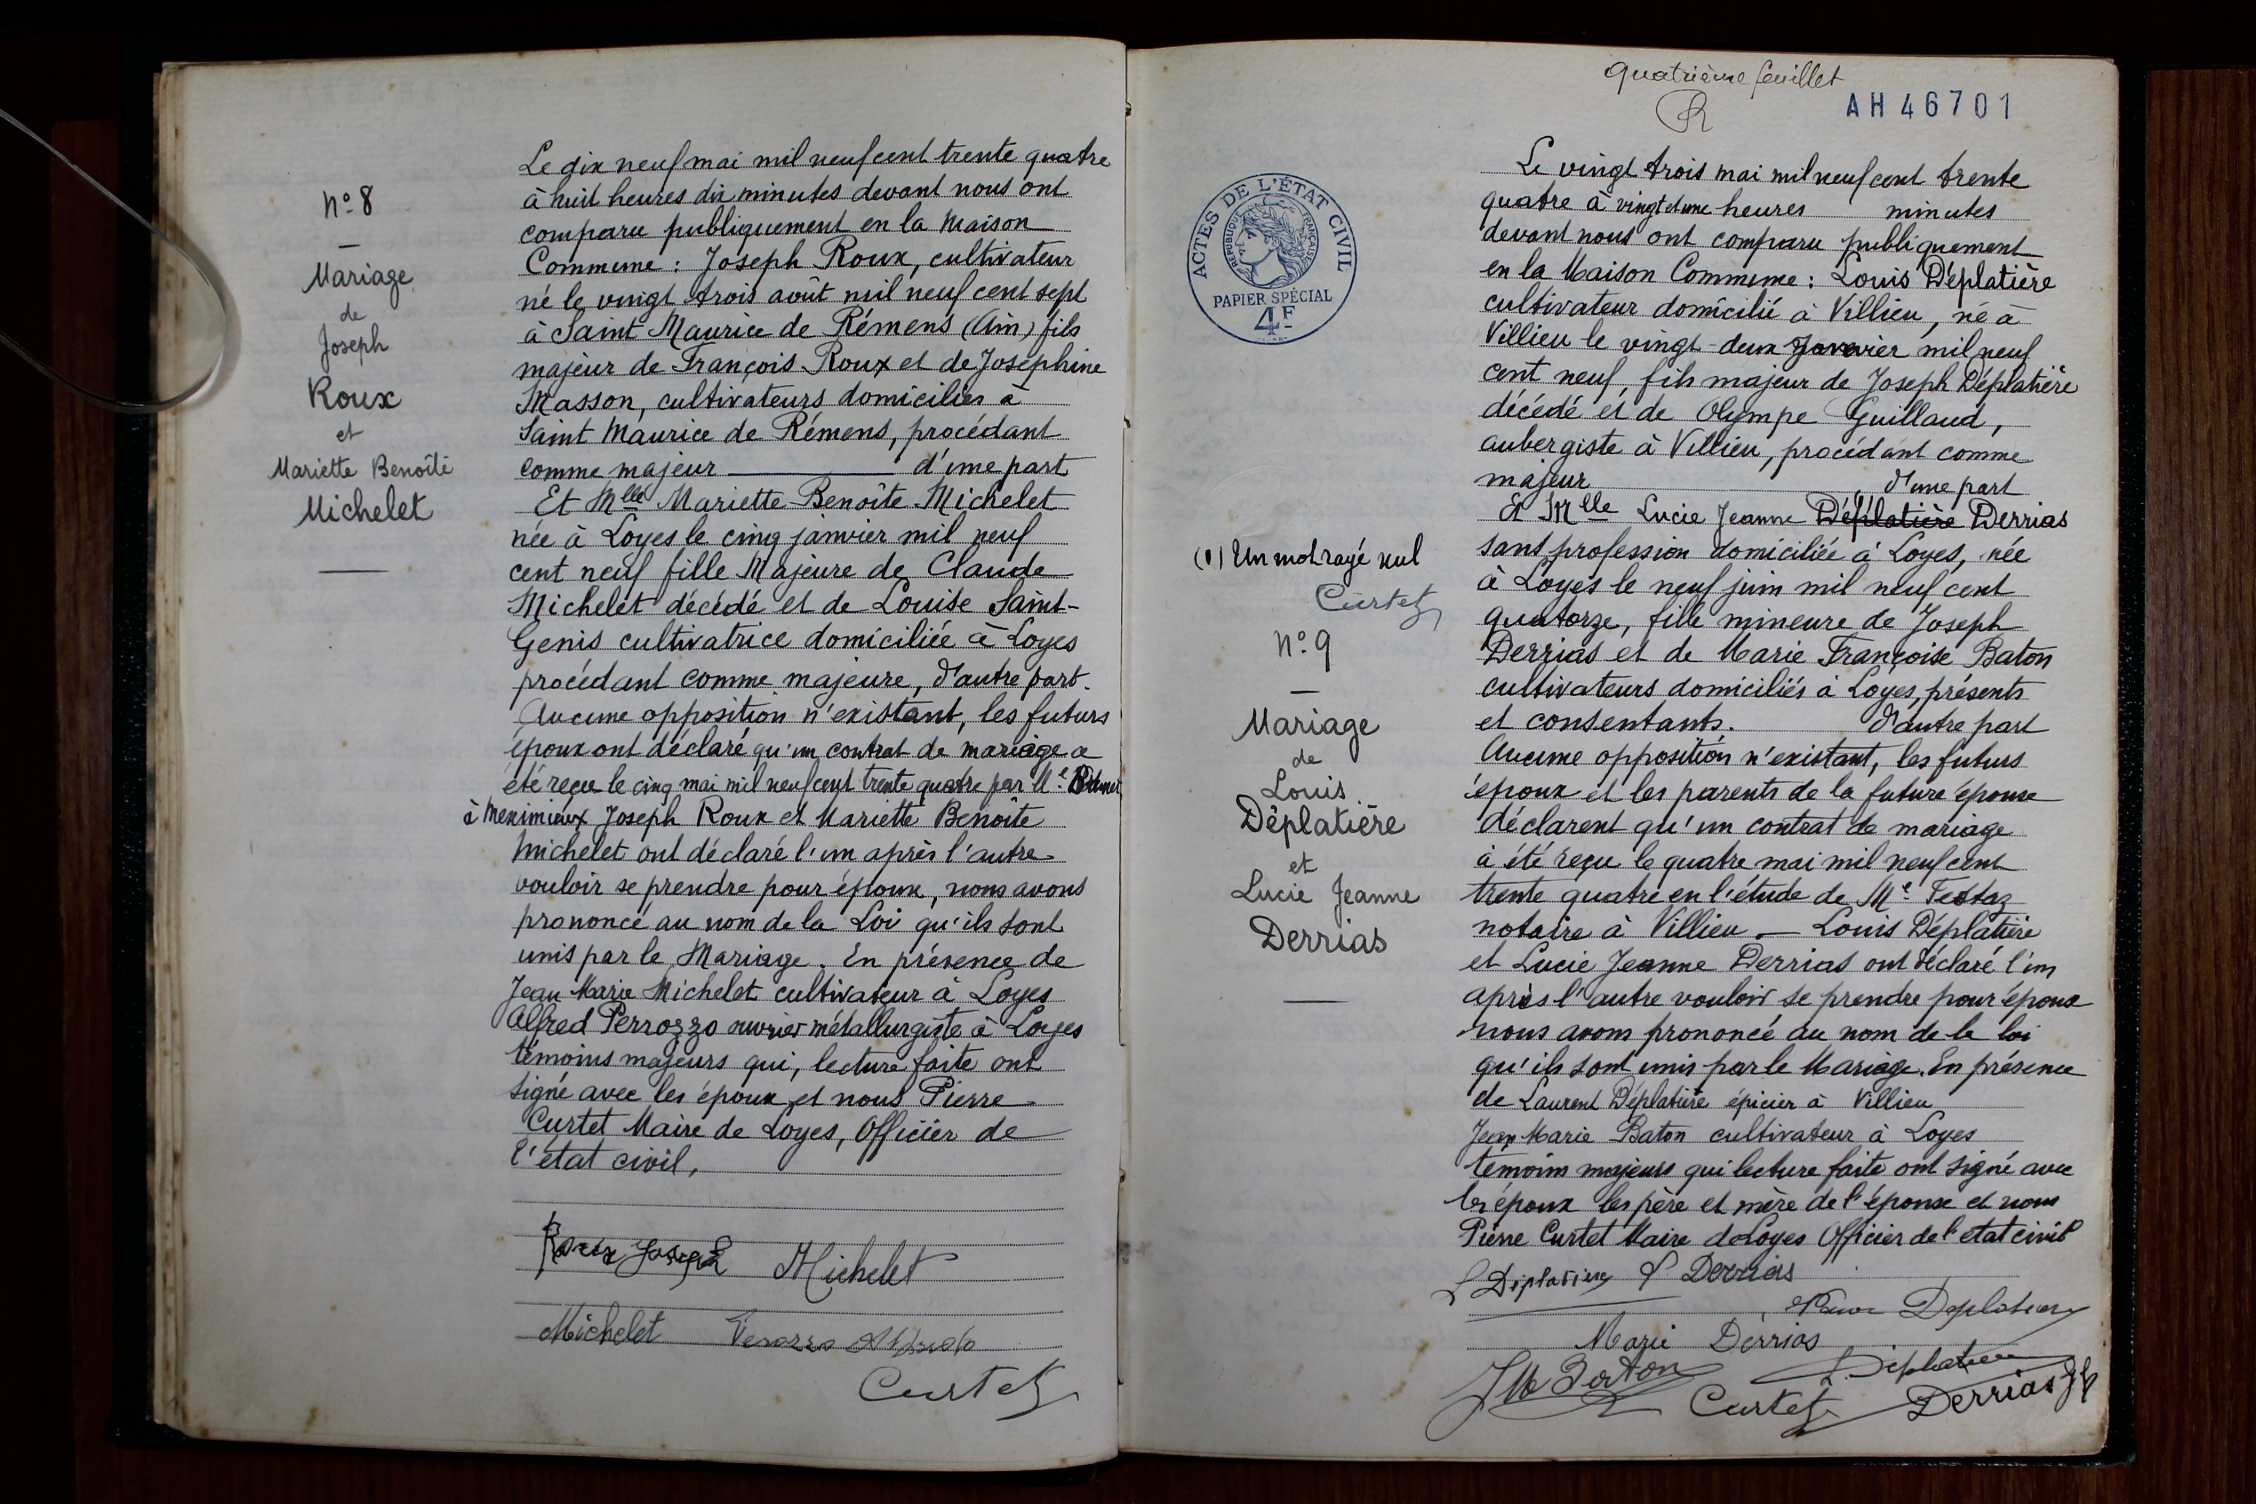 N° 8
Mariage
de
Joseph
Roux
et
Mariette Benoîte
Michelet
Le dix neuf mai mil neuf cent trente quatre
à huit heures dix minutes devant nous ont
comparu publiquement en la Maison
Commune : Joseph Roux, cultivateur
né le vingt trois août mil neuf cent sept
à Saint Maurice de Rémens (Ain) fils
majeur de François Roux et de Joséphine
Masson, cultivateurs domiciliés à
Saint Maurice de Rémens, procédant
comme majeur d'une part
Et Mlle Mariette Benoîte Michelet
née à Loyes le cinq janvier mil neuf
cent neuf fille Majeure de Claude
Michelet décédé et de Louise Saint-
Genis cultivatrice domiciliée à Loyes
procédant comme majeure, d'autre part.
Aucune opposition n'existant, les futurs
époux ont déclaré qu'un contrat de mariage a
été reçu le cinq mai mil neuf cent trente quatre par Me
à Meximieux Joseph Roux et Mariette Benoîte
Michelet ont déclaré l'un après l'autre
vouloir se prendre pour époux, nous avons
prononcé au nom de la Loi qu'ils sont
unis par le Mariage. En présence de
Jean Marie Michelet cultivateur à Loyes
Alfred Perrozzo ouvrier métallurgiste à Loyes
témoins majeurs qui, lecture faite ont
signé avec les époux et nous Pierre
Curtet Maire de Loyes, Officier de
l'état civil.
Roux Joseph Michelet
Michelet
Curtet
quatrième feuillet
AH 46701
ACTES DE L'ÉTAT CIVIL
REPUBLIQUE FRANÇAISE
PAPIER SPÉCIAL
4F
(1) Un mot rayé nul
Curtet
N° 9
Mariage
de
Louis
Déplatière
et
Lucie Jeanne
Derrias
Le vingt trois mai mil neuf cent trente
quatre à vingt et une heures minutes
devant nous ont comparu publiquement
en la Maison Commune : Louis Déplatière
cultivateur domicilié à Villieu, né à
Villieu le vingt-deux janvier mil neuf
cent neuf, fils majeur de Joseph Déplatière
décédé et de Olympe Guillaud,
aubergiste à Villieu, procédant comme
majeur d'une part
Et Mlle Lucie Jeanne Déplatière Derrias
sans profession domiciliée à Loyes, née
à Loyes le neuf juin mil neuf cent
quatorze, fille mineure de Joseph
Derrias et de Marie Françoise Baton
cultivateurs domiciliés à Loyes, présents
et consentants. d'autre part
Aucune opposition n'existant, les futurs
époux et les parents de la future épouse
déclarent qu'un contrat de mariage
à été reçu le quatre mai mil neuf cent
trente quatre en l'étude de Me Testaz
notaire à Villieu — Louis Déplatière
et Lucie Jeanne Derrias ont déclaré l'un
après l'autre vouloir se prendre pour époux
nous avons prononcé au nom de la loi
qu'ils sont unis par le Mariage. En présence
de Laurent Déplatière épicier à Villieu
Jean Marie Baton cultivateur à Loyes
témoins majeurs qui lecture faite ont signé avec
les époux les père et mère de l'épouse et nous
Pierre Curtet Maire de Loyes Officier de l'état civil
L Déplatière L Derrias
Déplatière
Marie Derrias
JM Baton L. Déplatière
Curtet Derrias Jh